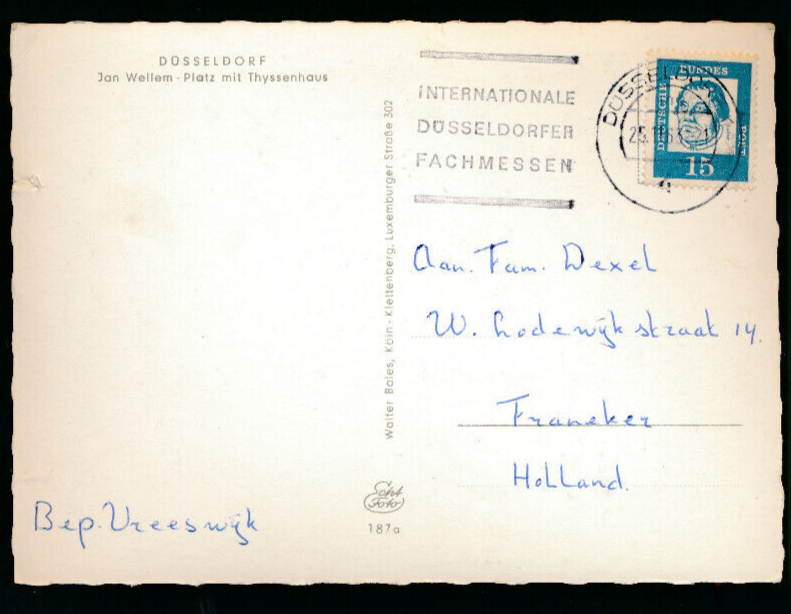 DÜSSELDORF
Jan Wellem-Platz mit Thyssenhaus
INTERNATIONALE
DÜSSELDORFER
FACHMESSEN
DÜSSELDORF
DEUTSCHE
BUNDES
POST
15
Walter Bales, Köln-Klettenberg, Luxemburger Straße 302
Aan. Fam. Dexel
W. Lodewijkstraat 14.
Franeker
Holland.
Bep. Vreeswijk
Echt
Foto
187a